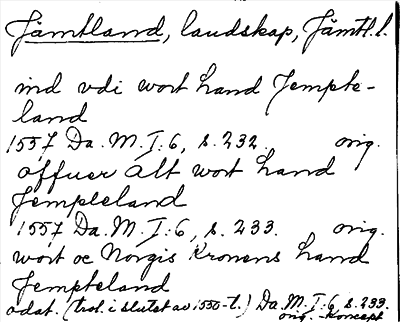 Jämtland, landskap, Jämtl.l.
ind vdi wort hand Jempte-
land
1557 Da. M. I:6, s. 232. orig.
offuer alt wort hand
Jempteland
1557 Da. M. I:6, s. 233. orig.
wort oc Norgis Kronens hand
Jempteland
odat. (trol. i slutet av 1550-t.) Da. M. I:6 s. 233.
orig. -koncept